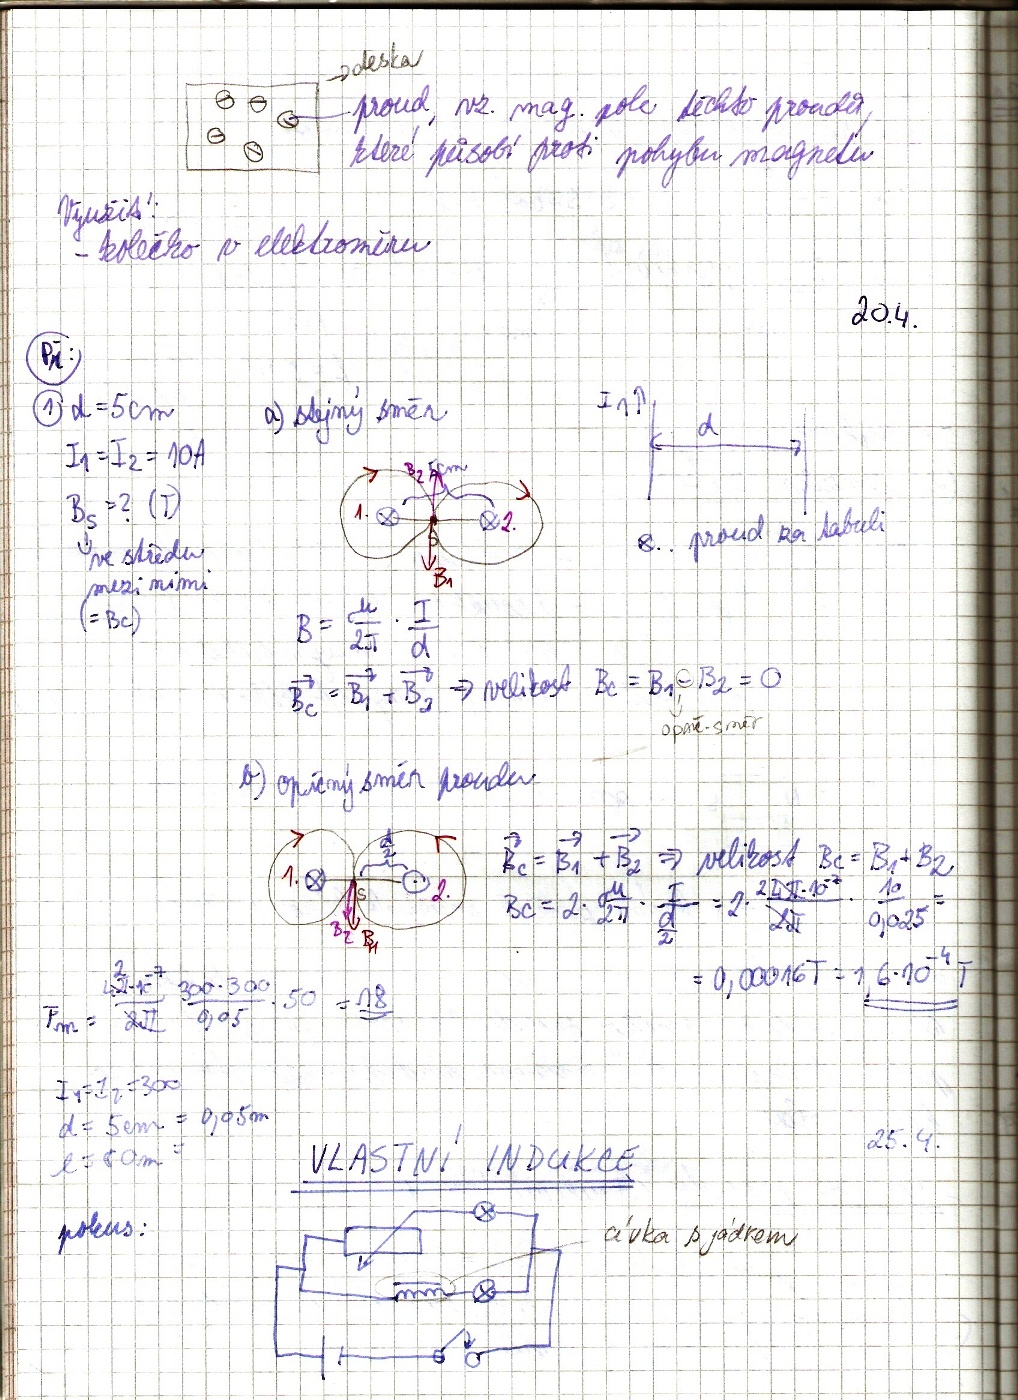 → deska
proud, vz. mag. pole těchto proudů,
které působí proti pohybu magnetu
Využití:
- kolečko v elektroměru
20.4.
Př:
1) d = 5cm
I₁ = I₂ = 10A
Bₛ = ? (T)
ve středu
mezi nimi
(= Bc)
a) stejný směr
I₁↑
d
B₂ 5cm
1. ⊗ ⊗ 2.
S
B₁
⊗.. proud za tabuli
B = μ/2π · I/d
B⃗c = B⃗₁ + B⃗₂ ⇒ velikost Bc = B₁ - B₂ = 0
opač. směr
b) opačný směr proudu
d/2
1. ⊗ S ⊙ 2.
B₂ B₁
B⃗c = B⃗₁ + B⃗₂ ⇒ velikost Bc = B₁ + B₂
Bc = 2 · μ/2π · I/(d/2) = 2 · 4π·10⁻⁷/2π · 10/0,025 =
= 0,00016T = 1,6·10⁻⁴ T
Fm = 4π·10⁻⁷/2π · 300·300/0,05 · 50 = 18
I₁ = I₂ = 300
d = 5cm = 0,05m
VLASTNÍ INDUKCE
25.4.
pokus:
cívka s jádrem